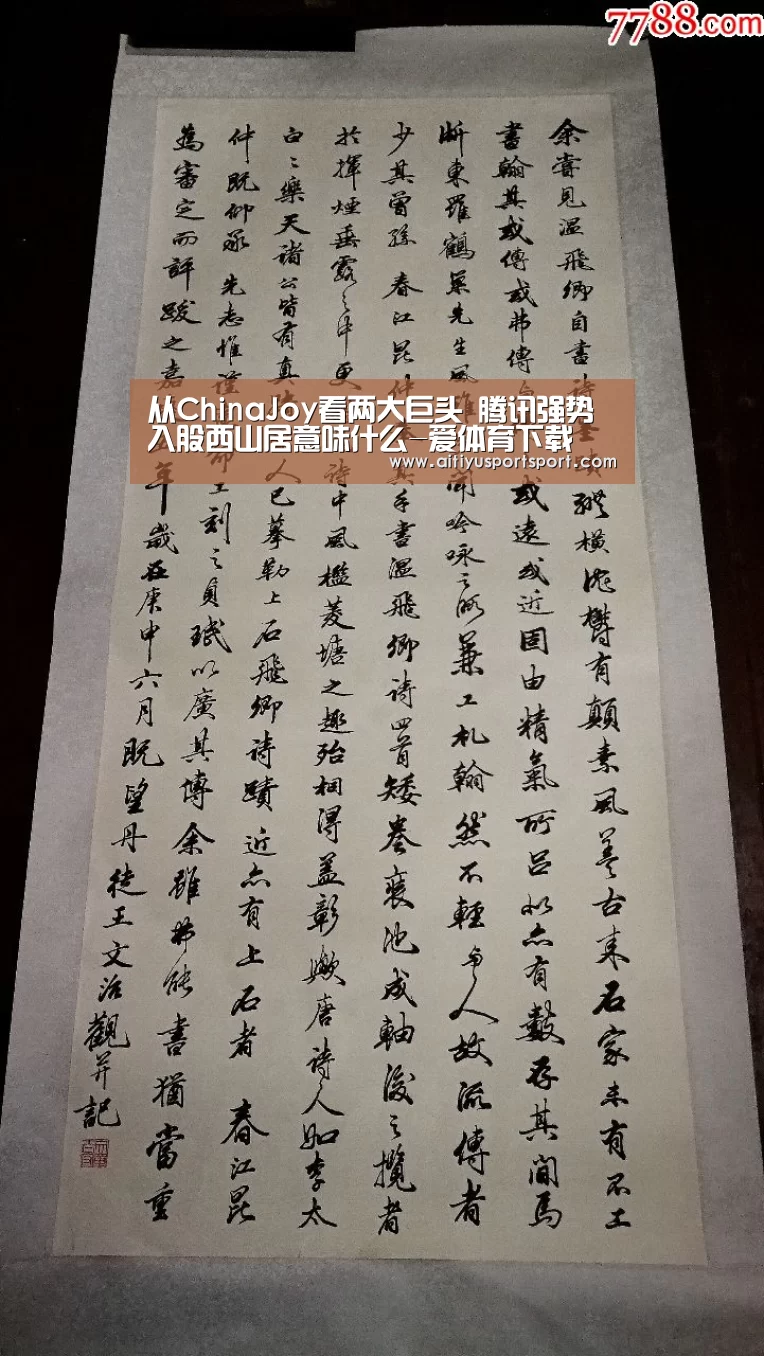 7788.com
余嘗見溫飛卿自書詩 蹟縱横 鬱有顛素風 古来名家未有不工
書翰其或傳或弗傳 或遠或近固由精氣所 亦有數存其間焉
東羅鶴 先生風雅 聞吟咏之 兼工札翰然不輕与人故流傳者
少其曾孫春江昆仲 其手書溫飛卿詩四首矮卷裒池成軸 之攬者
於揮煙垂露之中更 詩中風檻菱塘之趣殆相得益彰 唐詩人如李太
白白樂天諸公皆有真 人已摹勒上石飛卿詩蹟近亦有上石者春江昆
仲既仰承先志惟謹 工刻之貞珉以廣其傳余雖弗能書猶當重
為審定而評跋之嘉 年歲在庚申六月既望丹徒王文治觀并記
从ChinaJoy看两大巨头 腾讯强势
入股西山居意味什么-爱体育下载
www.aitiyusportsport.com